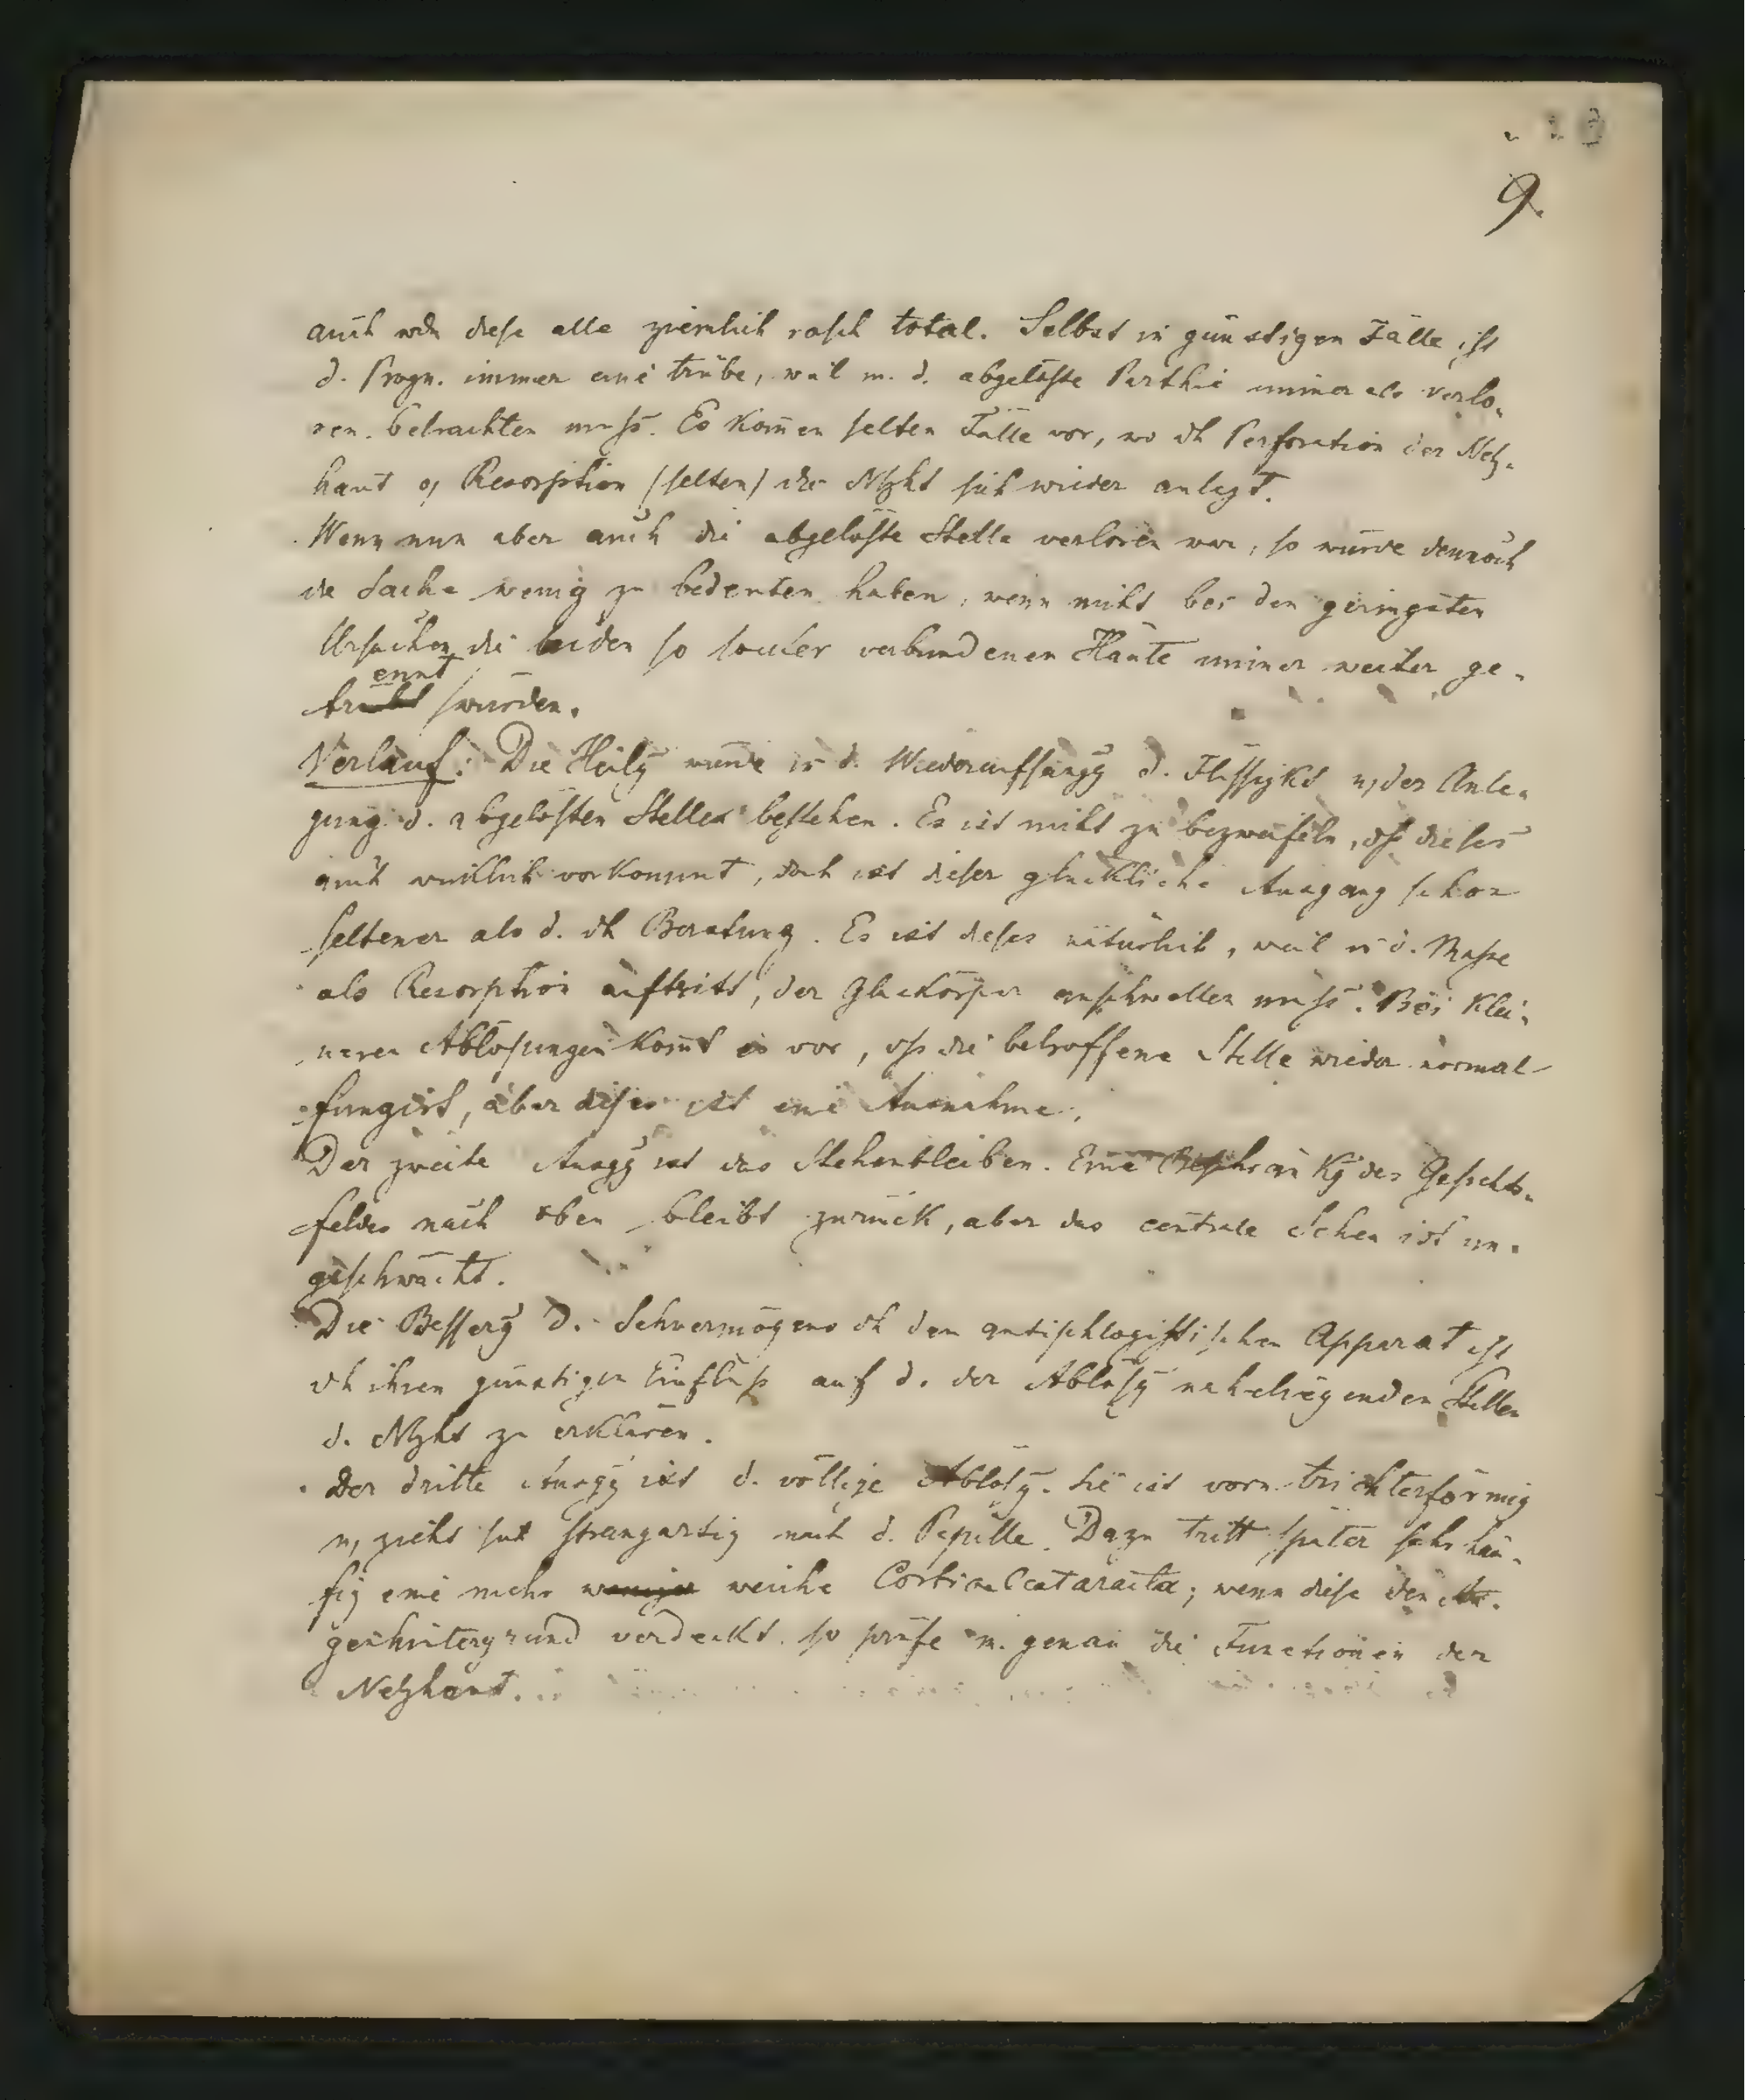 9.
auch wdn diese alle ziemlich rasch total. Selbst in günstigen Fälle ist
d. Progn. immer eine trübe, weil m. d. abgelöste Parthie immer als verlo-
ren betrachten muß. Es kom̄en selten Fälle vor, wo dh Perforation der Netz-
haut od Resorption (selten) die Ntzht sich wieder anlegt.
Wenn nun aber auch die abgelöste Stelle verloren war, so würde dennoch
die Sache wenig zu bedeuten haben, wenn nicht bei den geringsten
Ursachen die beiden so locker verbundenen Häute immer weiter ge-
ennt
tr würden.
Verlauf: Die Heilg würde in d. Wiederaufsaugg d. Flüssigkt u, der Anle-
gung d. abgelösten Stellen bestehen. Es ist nicht zu bezweifeln, dß dieses
auch wirklich vorkommt, doch ist dieser glückliche Ausgang schon
seltener als d. dh Berstung. Es ist dieses natürlich, weil in d. Maße
als Resorption auftritt, der Glaskörper anschwellen muß. Bei klei-
neren Ablösungen kom̄t es vor, dß die betroffene Stelle wieder normal
fungirt, aber dieses ist eine Ausnahme.
Der zweite Ausgg ist das Stehenbleiben. Eine Beschränkg des Gesichts-
feldes nach oben bleibt zurück, aber das centrale Sehen ist un-
geschwächt.
Die Besserg d. Sehvermögens dh den antiphlogistischen Apparat ist
dh ihren günstigen Einfluß auf d. der Ablösg naheliegenden Stellen
d. Ntzht zu erklären.
Der dritte Ausgg ist d. völlige Ablösg. Sie ist vorn trichterförmig
u, zieht sich strangartig nach d. Papille. Dazu tritt später sehr häu-
fig eine mehr weniger weiche Corticalcataracta; wenn diese den Au-
genhintergrund verdeckt, so prüfe m. genau die Functionen der
Netzhaut.